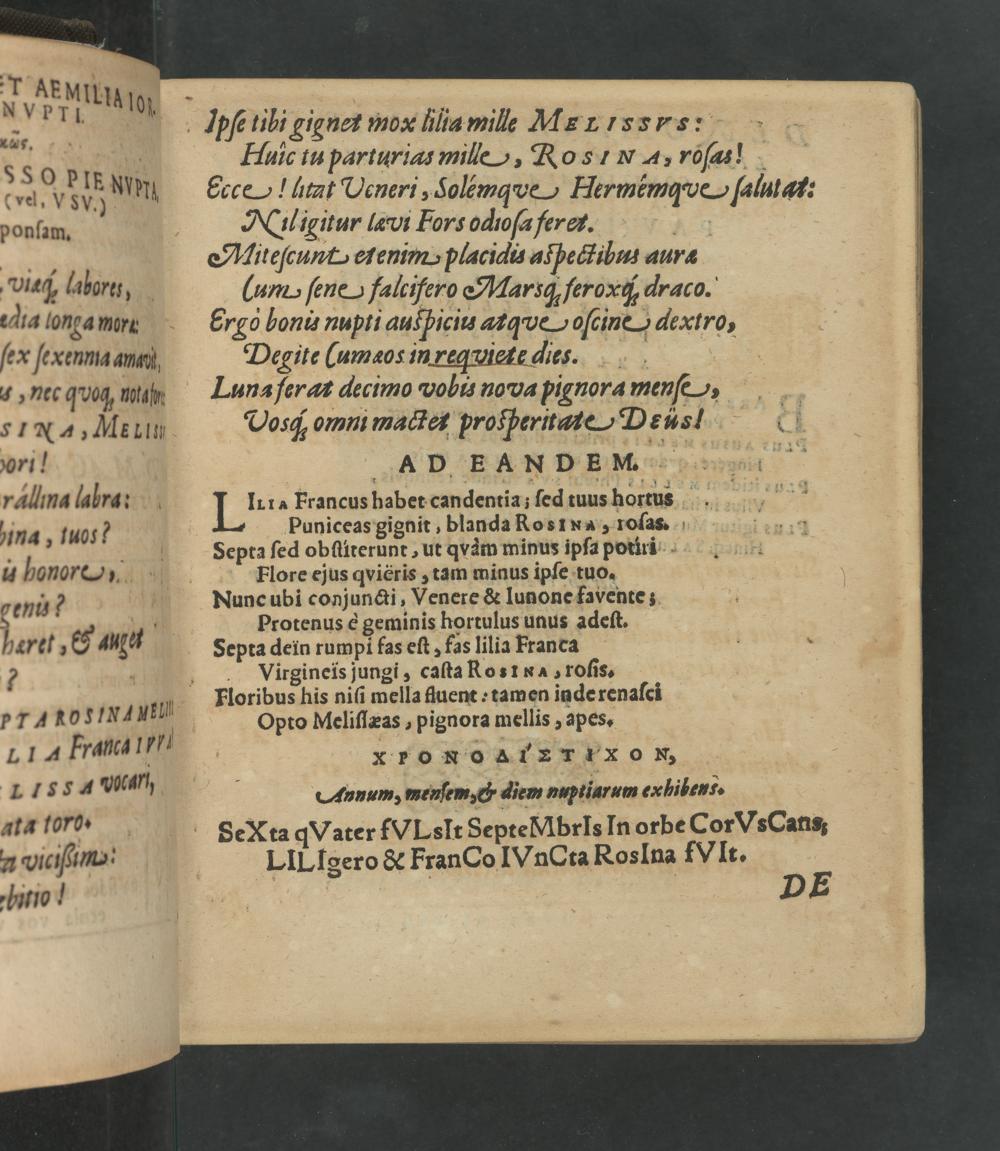 ET AEMILIA IOR-
NVPTI.
SSO PIE NVPTA,
(vel, VSV.)
ponſam.
viæq́; labores,
longa mora:
ſex ſexennia amavit,
, nec quoq́;
SINA, MELISS
pori!
rállina labra:
bina, tuos?
is honore,
genis?
hæret, & auget
?
PTA ROSINA MELI
LIA Franca
ELISSA vocari,
ata toro.
vicißim:
ebitio!
Ipſe tibi gignet mox lilia mille MELISSVS:
Huîc tu parturias mille, ROSINA, roſas!
Ecce! litat Veneri, Solémqve Hermêmqve ſalutat:
Nil igitur lævi Fors odioſa feret.
Miteſcunt etenim placidis aſpectibus auræ
Cum ſene falcifero Marsq́; feroxq́; draco.
Ergò bonis nupti auſpiciis atqve oſcine dextro,
Degite Cumæos in requiete dies.
Luna ferat decimo vobis nova pignora menſe,
Vosq́; omni mactet proſperitate DEÜs!
AD EANDEM.
LILIA Francus habet candentia; ſed tuus hortus
Puniceas gignit, blanda ROSINA, roſas.
Septa ſed obſtiterunt, ut qvàm minus ipſa potiri
Flore ejus qviëris, tam minus ipſe tuo.
Nunc ubi conjuncti, Venere & Iunone favente;
Protenus è geminis hortulus unus adeſt.
Septa deïn rumpi fas eſt, fas lilia Franca
Virgineïs jungi, caſta ROSINA, roſis.
Floribus his niſi mella fluent: tamen inde renaſci
Opto Meliſſæas, pignora mellis, apes.
ΧΡΟΝΟΔΊΣΤΙΧΟΝ,
Annum, menſem, & diem nuptiarum exhibens.
SeXta qVater fVLsIt SepteMbrIs In orbe CorVsCans;
LILIgero & FranCo IVnCta RosIna fVIt.
DE